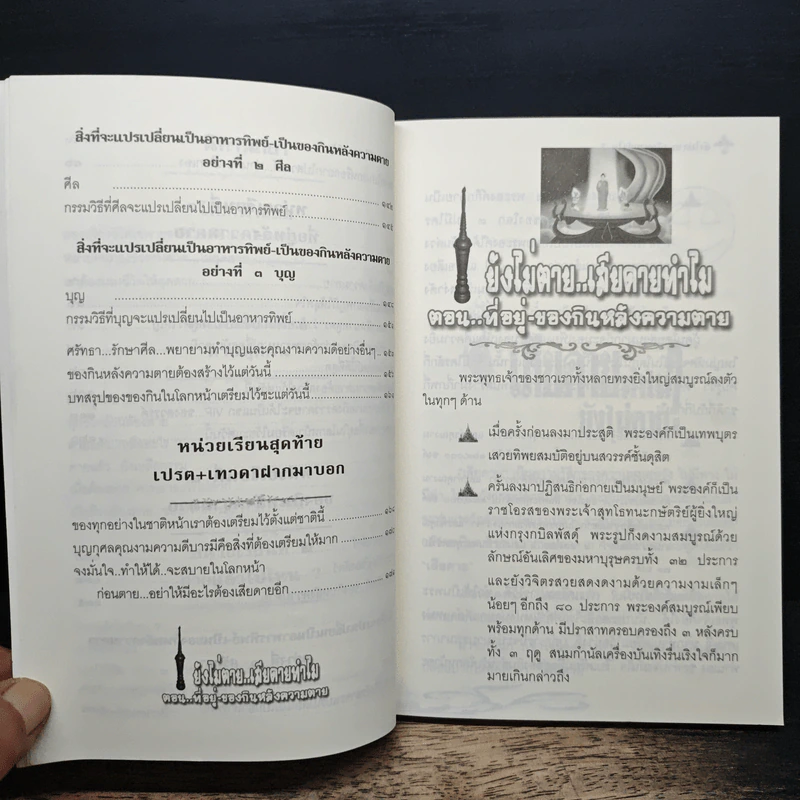 สิ่งที่จะแปรเปลี่ยนเป็นอาหารทิพย์-เป็นของกินหลังความตาย
อย่างที่ ๒ ศีล
ศีล
กรรมวิธีที่ศีลจะแปรเปลี่ยนไปเป็นอาหารทิพย์
สิ่งที่จะแปรเปลี่ยนเป็นอาหารทิพย์-เป็นของกินหลังความตาย
อย่างที่ ๓ บุญ
บุญ
กรรมวิธีที่บุญจะแปรเปลี่ยนไปเป็นอาหารทิพย์
ศรัทธา...รักษาศีล...พยายามทำบุญและคุณงามความดีอย่างอื่นๆ
ของกินหลังความตายต้องสร้างไว้แต่วันนี้
บทสรุปของของกินในโลกหน้าเตรียมไว้ซะแต่วันนี้
หน่วยเรียนสุดท้าย
เปรต+เทวดาฝากมาบอก
ของทุกอย่างในชาติหน้าเราต้องเตรียมไว้ตั้งแต่ชาตินี้
บุญกุศลคุณงามความดีบารมีคือสิ่งที่ต้องเตรียมให้มาก
จงมั่นใจ..ทำให้ได้..จะสบายในโลกหน้า
ก่อนตาย...อย่าให้มีอะไรต้องเสียดายอีก
ยังไม่ตาย..เสียดายทำไม
ตอน..ที่อยู่-ของกินหลังความตาย
ยังไม่ตาย..เสียดายทำไม
ตอน..ที่อยู่-ของกินหลังความตาย
พระพุทธเจ้าของชาวเราทั้งหลายทรงยิ่งใหญ่สมบูรณ์ลงตัว
ในทุกๆ ด้าน
เมื่อครั้งก่อนลงมาประสูติ พระองค์ก็เป็นเทพบุตร
เสวยทิพยสมบัติอยู่บนสวรรค์ชั้นดุสิต
ครั้นลงมาปฏิสนธิก่อกายเป็นมนุษย์ พระองค์ก็เป็น
ราชโอรสของพระเจ้าสุทโธทนะกษัตริย์ผู้ยิ่งใหญ่
แห่งกรุงกบิลพัสดุ์ พระรูปก็งดงามสมบูรณ์ด้วย
ลักษณ์อันเลิศของมหาบุรุษครบทั้ง ๓๒ ประการ
และยังวิจิตรสวยสดงดงามด้วยความงามเล็กๆ
น้อยๆ อีกถึง ๘๐ ประการ พระองค์สมบูรณ์เพียบ
พร้อมทุกด้าน มีปราสาทครอบครองถึง ๓ หลังครบ
ทั้ง ๓ ฤดู สนมกำนัลเครื่องบันเทิงรื่นเริงใจก็มาก
มายเกินกล่าวถึง